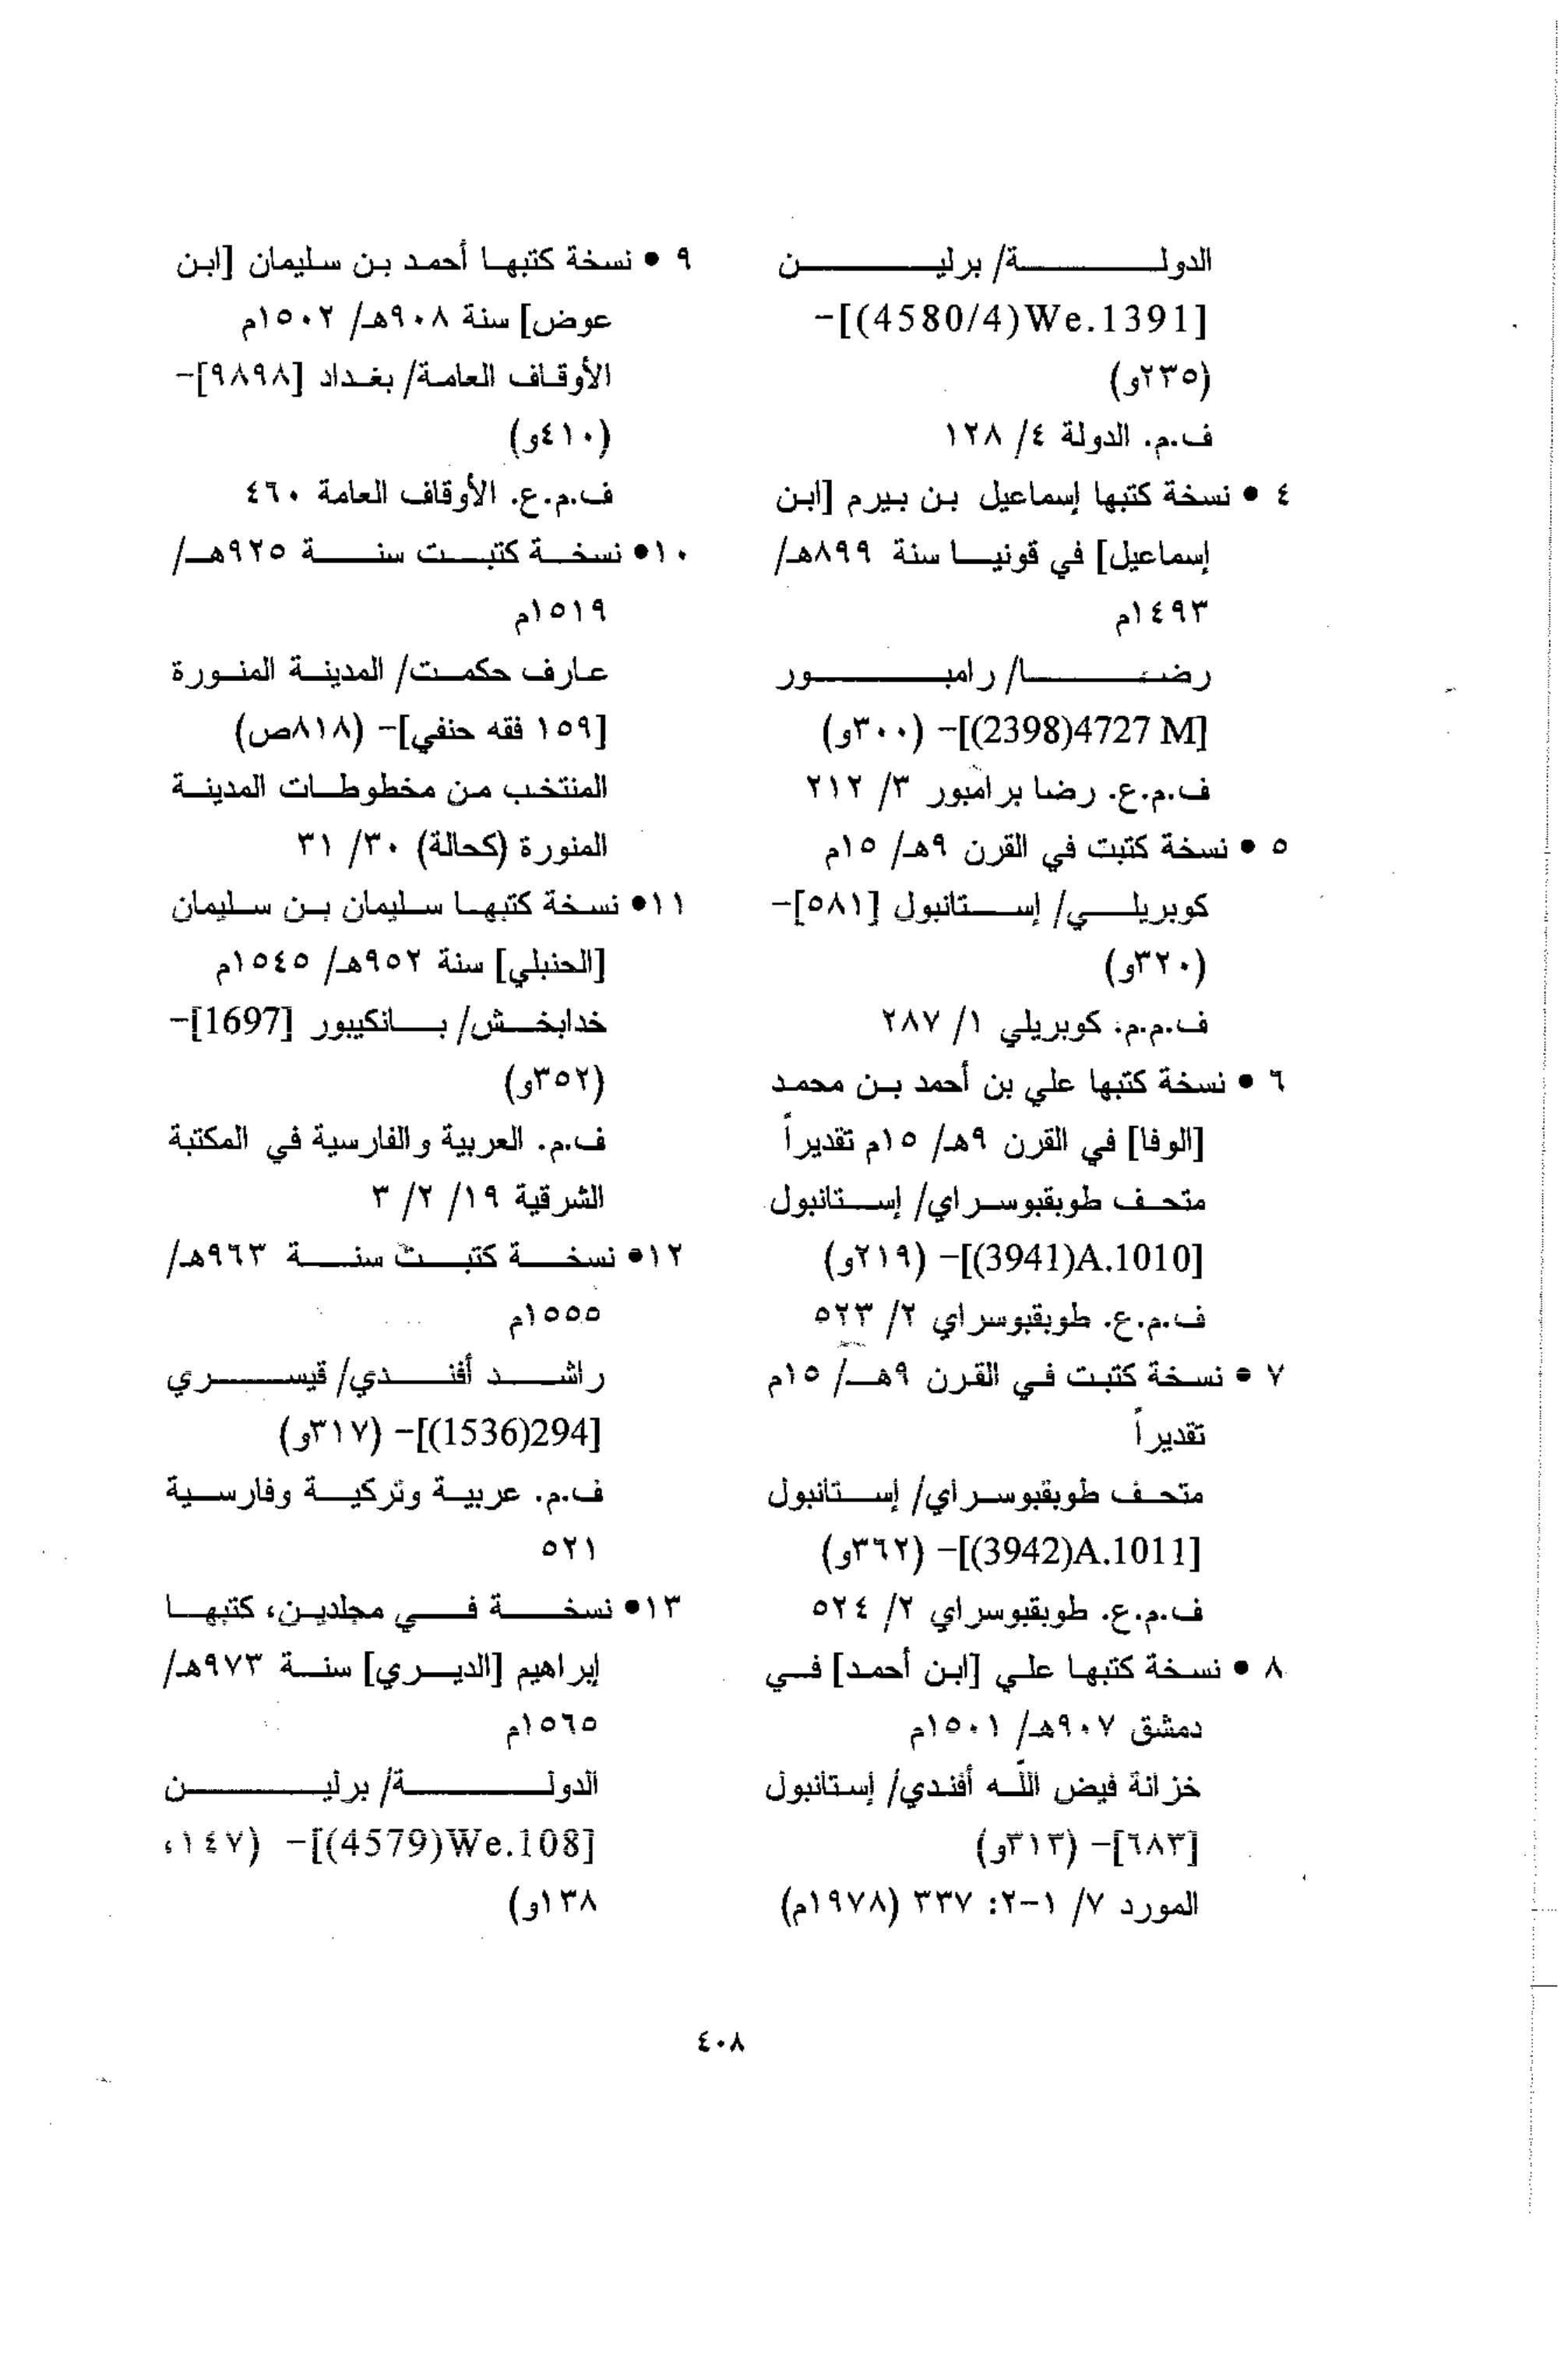 الدولة/ برلين
[4580/4)We.1391)]-
(٢٣٥و)
ف.م. الدولة ٤/ ١٢٨
٤ • نسخة كتبها إسماعيل بن بيرم [ابن
إسماعيل] في قونيا سنة ٨٩٩هـ/
١٤٩٣م
رضا/ رامبور
[2398)4727 M)]- (٣٠٠و)
ف.م.ع. رضا برامبور ٣/ ٢١٢
٥ • نسخة كتبت في القرن ٩هـ/ ١٥م
كوبريلي/ إستانبول [٥٨١]-
(٣٢٠و)
ف.م.م. كوبريلي ١/ ٢٨٧
٦ • نسخة كتبها علي بن أحمد بن محمد
[الوفا] في القرن ٩هـ/ ١٥م تقديراً
متحف طوبقبوسراي/ إستانبول
[3941)A.1010)]- (٢١٩و)
ف.م.ع. طوبقبوسراي ٢/ ٥٢٣
٧ • نسخة كتبت في القرن ٩هـ/ ١٥م
تقديراً
متحف طوبقبوسراي/ إستانبول
[3942)A.1011)]- (٣٦٢و)
ف.م.ع. طوبقبوسراي ٢/ ٥٢٤
٨ • نسخة كتبها علي [ابن أحمد] في
دمشق ٩٠٧هـ/ ١٥٠١م
خزانة فيض اللّه أفندي/ إستانبول
[٦٨٣]- (٣١٣و)
المورد ٧/ ١-٢: ٣٣٧ (١٩٧٨م)
٩ • نسخة كتبها أحمد بن سليمان [ابن
عوض] سنة ٩٠٨هـ/ ١٥٠٢م
الأوقاف العامة/ بغداد [٩٨٩٨]-
(٤١٠و)
ف.م.ع. الأوقاف العامة ٤٦٠
١٠• نسخة كتبت سنة ٩٢٥هـ/
١٥١٩م
عارف حكمت/ المدينة المنورة
[١٥٩ فقه حنفي]- (٨١٨ص)
المنتخب من مخطوطات المدينة
المنورة (كحالة) ٣٠/ ٣١
١١• نسخة كتبها سليمان بن سليمان
[الحنبلي] سنة ٩٥٢هـ/ ١٥٤٥م
خدابخش/ بانكيبور [1697]-
(٣٥٢و)
ف.م. العربية والفارسية في المكتبة
الشرقية ١٩/ ٢/ ٣
١٢• نسخة كتبت سنة ٩٦٣هـ/
١٥٥٥م
راشد أفندي/ قيسري
[1536)294)]- (٣١٧و)
ف.م. عربية وتركية وفارسية
٥٢١
١٣• نسخة في مجلدين، كتبها
إبراهيم [الديري] سنة ٩٧٣هـ/
١٥٦٥م
الدولة/ برلين
[4579)We.108)]- (١٤٧،
١٣٨و)
٤٠٨